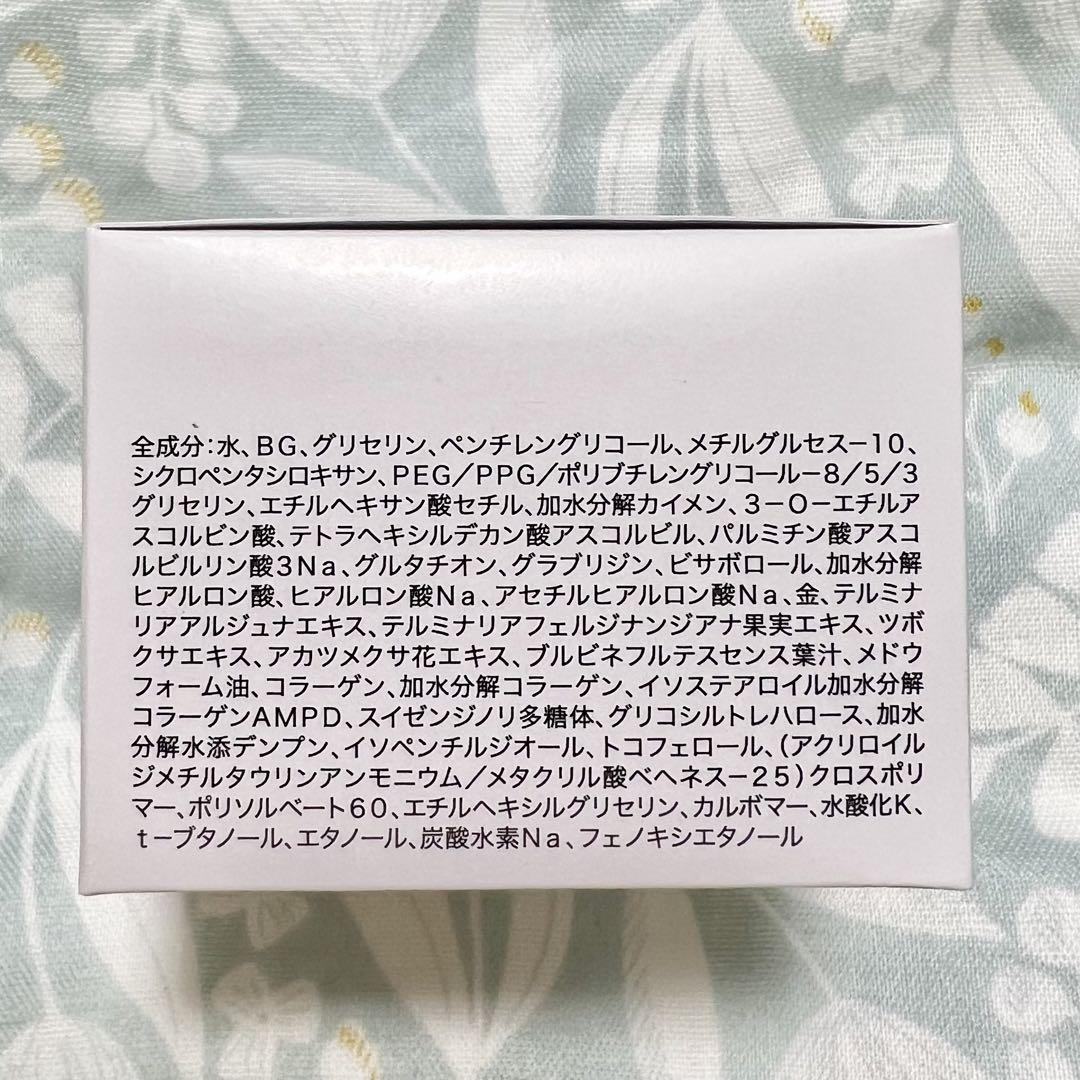 全成分：水、BG、グリセリン、ペンチレングリコール、メチルグルセス－10、
シクロペンタシロキサン、PEG／PPG／ポリブチレングリコール－8／5／3
グリセリン、エチルヘキサン酸セチル、加水分解カイメン、3－O－エチルア
スコルビン酸、テトラヘキシルデカン酸アスコルビル、パルミチン酸アスコ
ルビルリン酸3Na、グルタチオン、グラブリジン、ビサボロール、加水分解
ヒアルロン酸、ヒアルロン酸Na、アセチルヒアルロン酸Na、金、テルミナ
リアアルジュナエキス、テルミナリアフェルジナンジアナ果実エキス、ツボ
クサエキス、アカツメクサ花エキス、ブルビネフルテスセンス葉汁、メドウ
フォーム油、コラーゲン、加水分解コラーゲン、イソステアロイル加水分解
コラーゲンAMPD、スイゼンジノリ多糖体、グリコシルトレハロース、加水
分解水添デンプン、イソペンチルジオール、トコフェロール、（アクリロイル
ジメチルタウリンアンモニウム／メタクリル酸ベヘネス－25）クロスポリ
マー、ポリソルベート60、エチルヘキシルグリセリン、カルボマー、水酸化K、
t－ブタノール、エタノール、炭酸水素Na、フェノキシエタノール